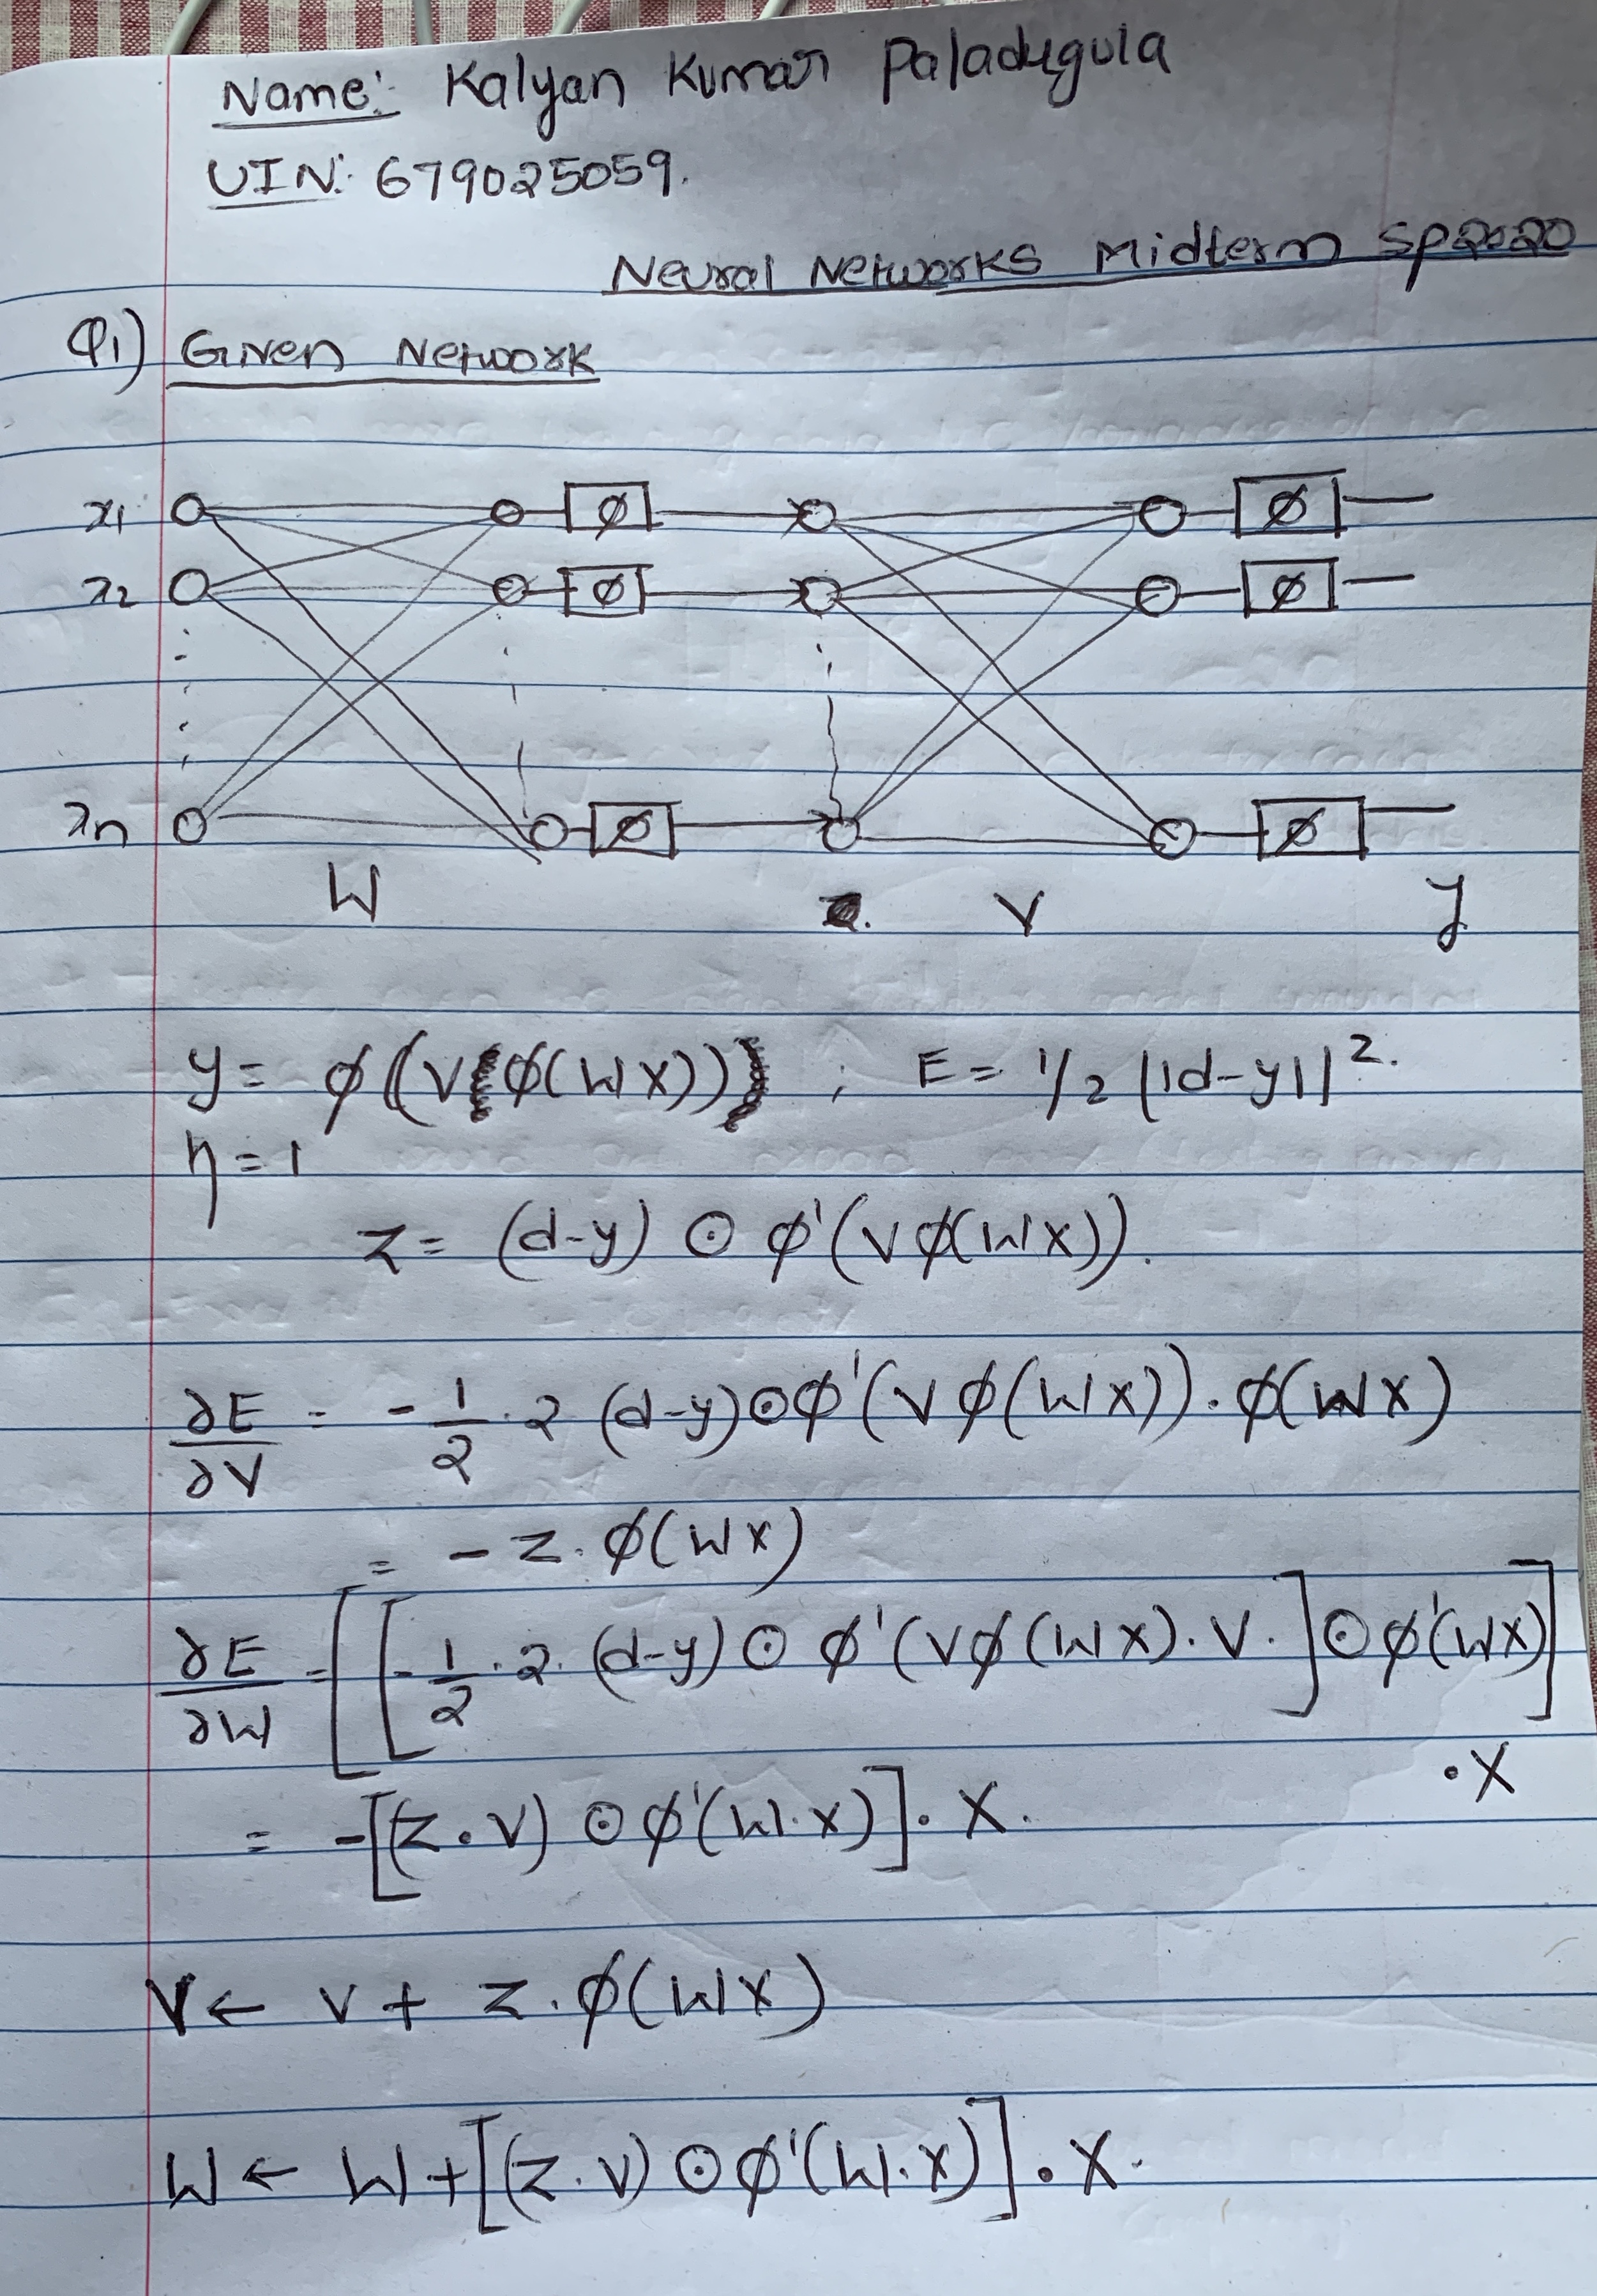 Name: Kalyan Kumar Paladugula
UIN: 679025059.
Neural Networks Midterm SP2020
Q1) Given Network
x1 ϕ ϕ
x2 ϕ ϕ
xn ϕ ϕ
W V y
y = ϕ((Vϕ(WX)) ; E = 1/2 ||d-y||².
η = 1
z = (d-y) ⊙ ϕ'(Vϕ(WX)).
∂E/∂V = -1/2 · 2 (d-y)⊙ϕ'(Vϕ(WX)) · ϕ(WX)
= - z. ϕ(WX)
∂E/∂W = [[-1/2 · 2. (d-y) ⊙ ϕ'(Vϕ(WX) · V.] ⊙ ϕ'(WX)]
· X
= -[(z · V) ⊙ ϕ'(W.X)] · X.
V ← V + z . ϕ(WX)
W ← W + [(z · V) ⊙ ϕ'(W.X)] · X.